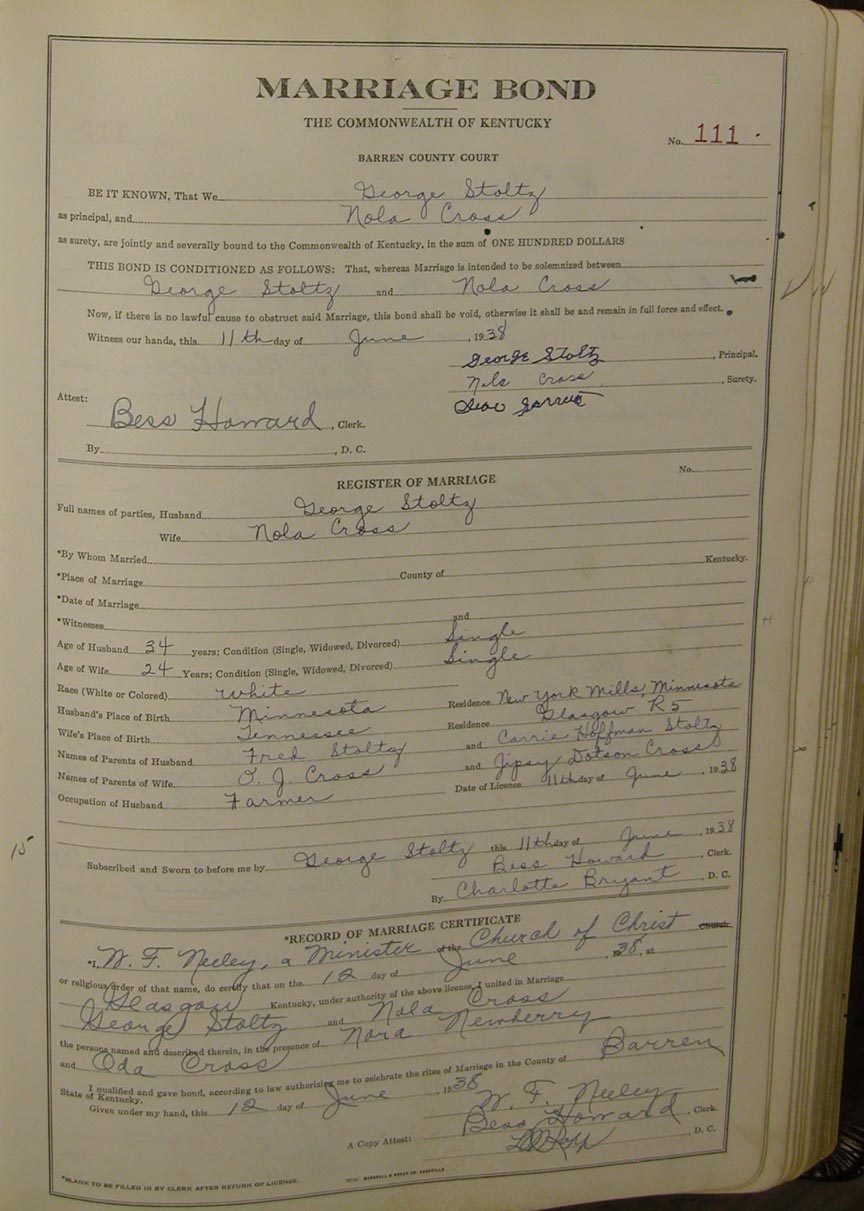 MARRIAGE BOND
THE COMMONWEALTH OF KENTUCKY
No. 111
BARREN COUNTY COURT
BE IT KNOWN, That We George Stoltz
as principal, and Nola Cross
as surety, are jointly and severally bound to the Commonwealth of Kentucky, in the sum of ONE HUNDRED DOLLARS
THIS BOND IS CONDITIONED AS FOLLOWS: That, whereas Marriage is intended to be solemnized between
George Stoltz and Nola Cross
Now, if there is no lawful cause to obstruct said Marriage, this bond shall be void, otherwise it shall be and remain in full force and effect.
Witness our hands, this 11th day of June, 1938
George Stoltz, Principal,
Nola Cross, Surety.
Attest:
Bess Howard, Clerk.
By, D. C.
No.
REGISTER OF MARRIAGE
Full names of parties, Husband George Stoltz
Wife Nola Cross
*By Whom Married
*Place of Marriage County of Kentucky.
*Date of Marriage
*Witnesses and
Age of Husband 34 years; Condition (Single, Widowed, Divorced) Single
Age of Wife 24 Years; Condition (Single, Widowed, Divorced) Single
Race (White or Colored) White
Husband's Place of Birth Minnesota Residence New York Mills, Minnesota
Wife's Place of Birth Tennessee Residence Glasgow R5
Names of Parents of Husband Fred Stoltz and Carrie Hoffman Stoltz
Names of Parents of Wife O. J. Cross and Jipsy Dotson Cross
Occupation of Husband Farmer Date of License 11th day of June, 1938
15
Subscribed and Sworn to before me by George Stoltz this 11th day of June, 1938
Bess Howard, Clerk.
By Charlotte Bryant, D. C.
*RECORD OF MARRIAGE CERTIFICATE
*I, W. F. Neeley, a Minister of the Church of Christ Church
or religious order of that name, do certify that on the 12 day of June, 1938, at
Glasgow Kentucky, under authority of the above license, I united in Marriage
George Stoltz and Nola Cross
the persons named and described therein, in the presence of Nora Newberry
and Oda Cross
I qualified and gave bond, according to law authorizing me to celebrate the rites of Marriage in the County of Barren
State of Kentucky.
Given under my hand, this 12 day of June, 1938
W. F. Neeley
A Copy Attest: Bess Howard, Clerk.
D. C.
*BLANK TO BE FILLED IN BY CLERK AFTER RETURN OF LICENSE.